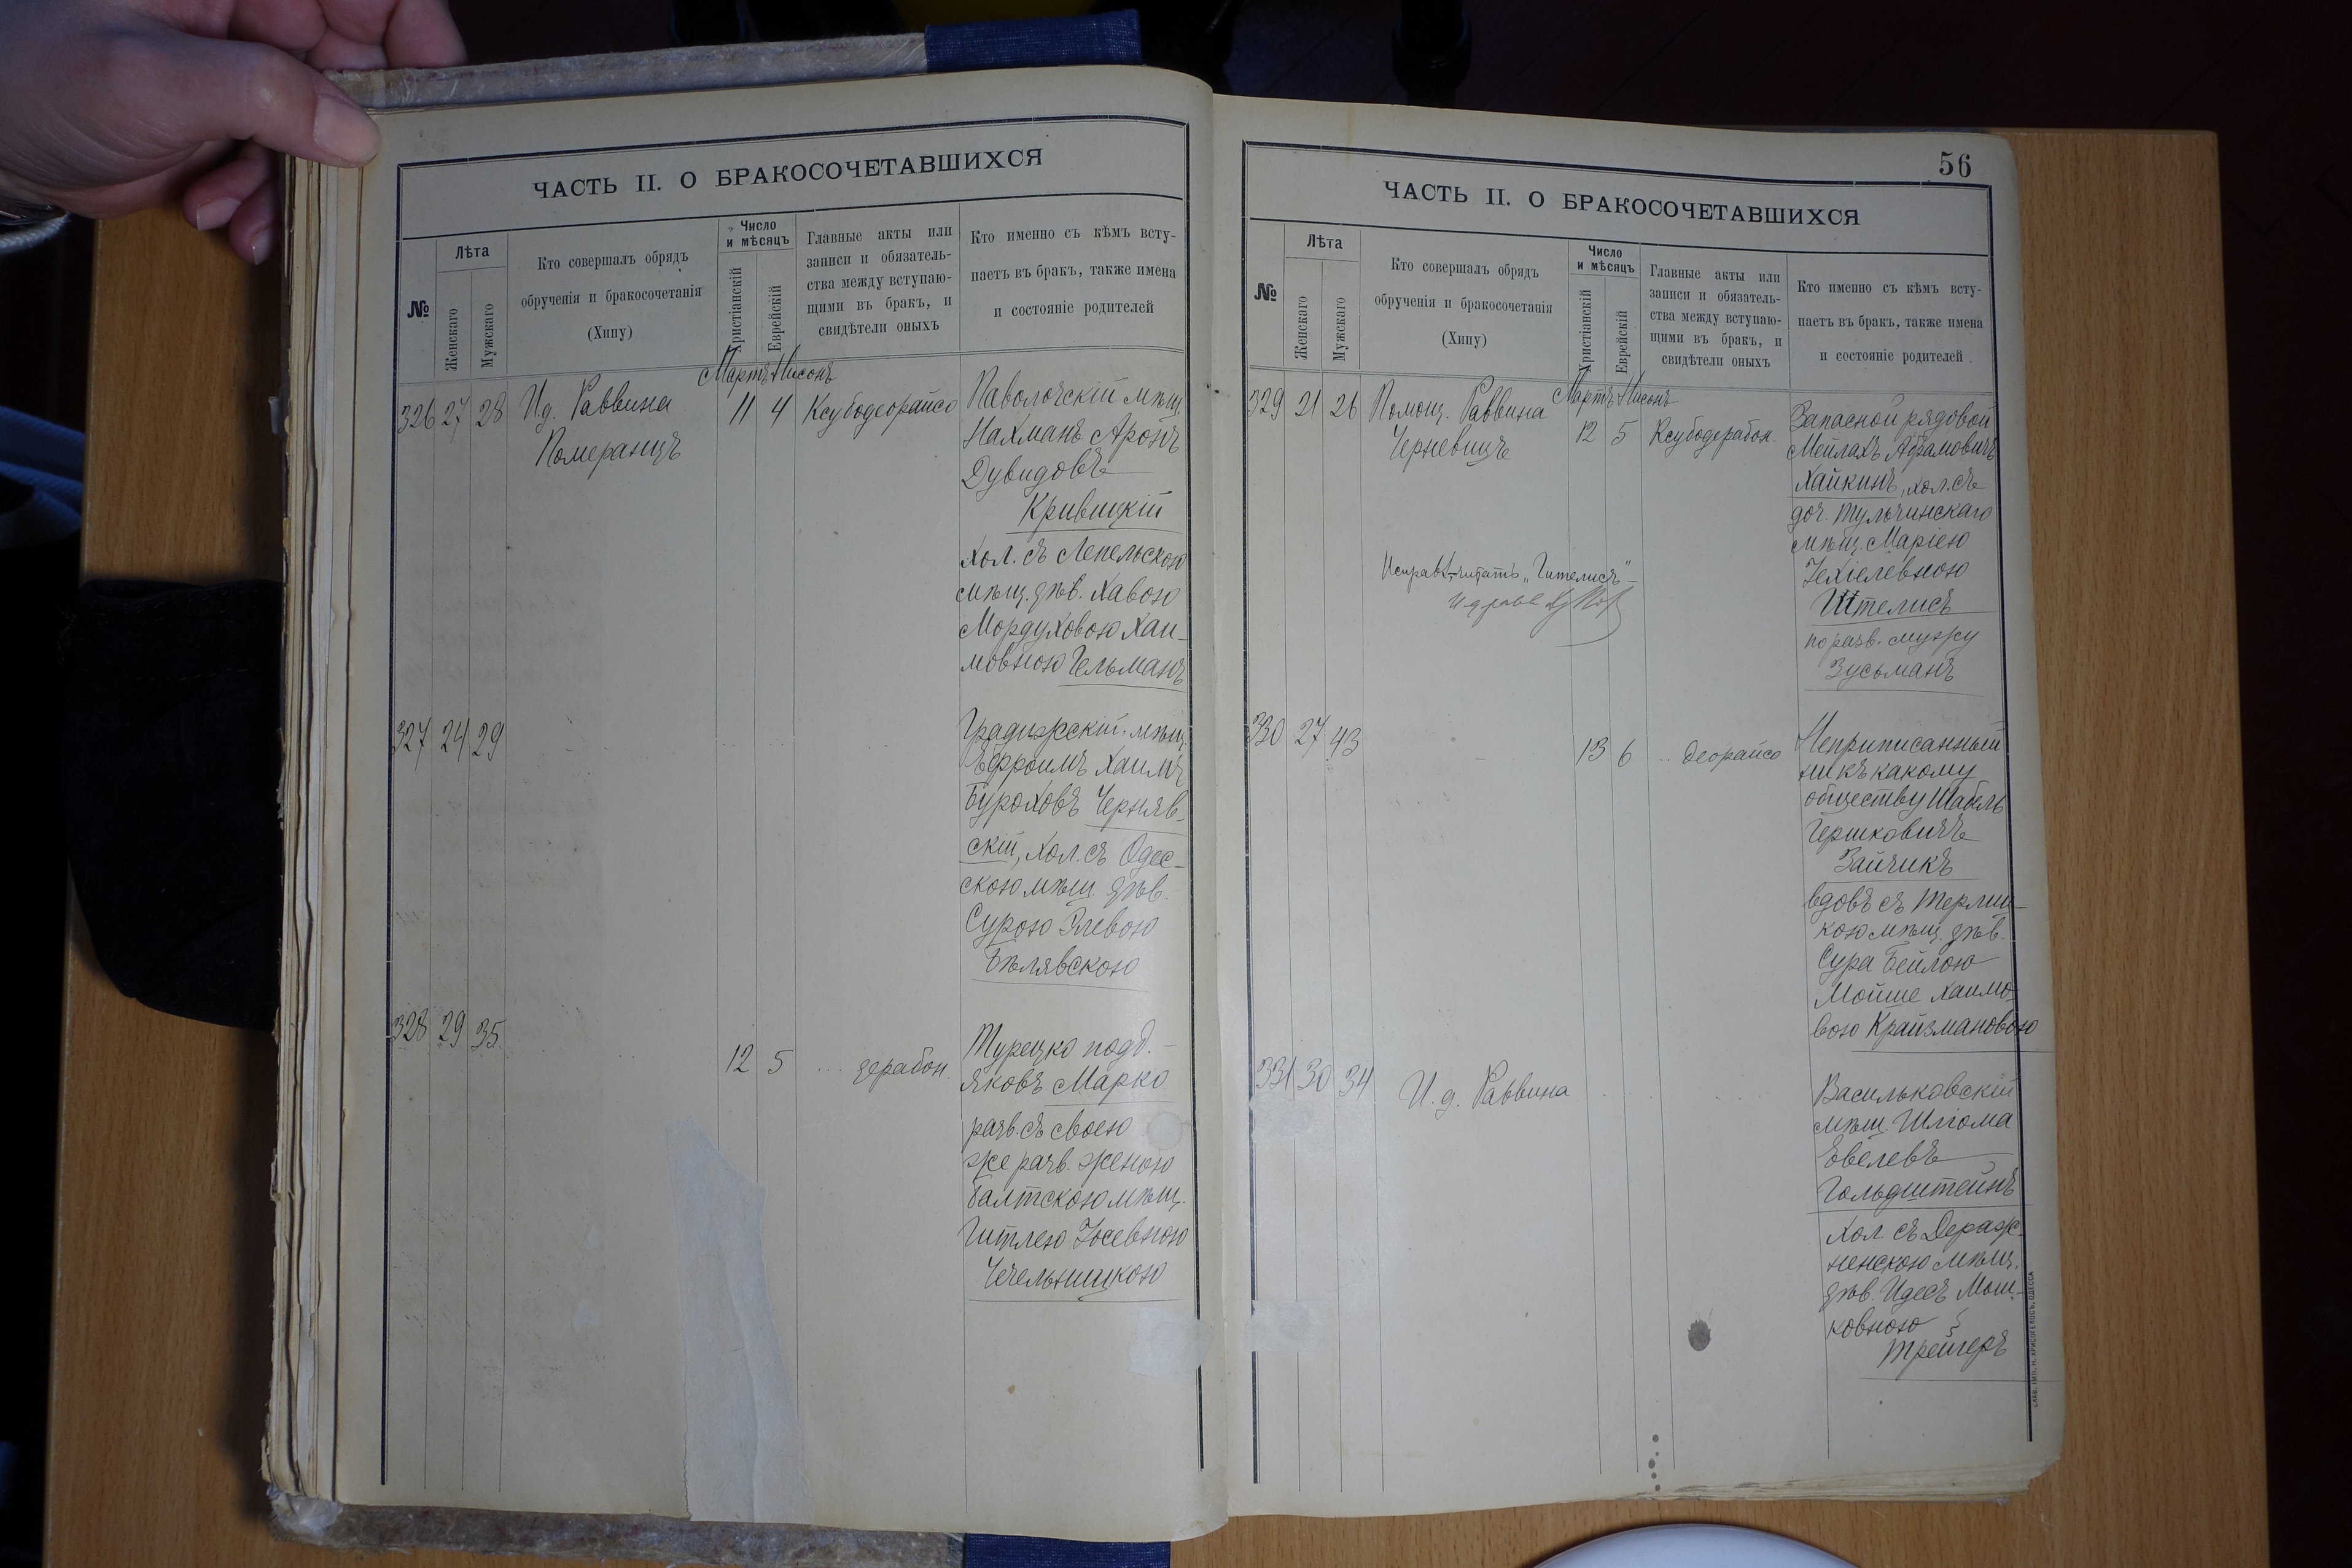 ЧАСТЬ II. О БРАКОСОЧЕТАВШИХСЯ
№
Лѣта
Женскаго
Мужскаго
Кто совершалъ обрядъ
обрученія и бракосочетанія
(Хипу)
Число
и мѣсяцъ
Христіанскій
Еврейскій
Главные акты или
записи и обязатель-
ства между вступаю-
щими въ бракъ, и
свидѣтели оныхъ
Кто именно съ кѣмъ всту-
паетъ въ бракъ, также имена
и состояніе родителей
Мартъ Нисонъ
326 27 28 Ид. Раввина 11 4 Ксубодеорайсо
Померанцъ
Паволочскій мѣщ.
Нахманъ Аронъ
Дувидовъ
Кривицкій
хол. съ Лепельскою
мѣщ. дѣв. Хавою
Мордуховою Хаи-
мовною Гельманъ
327 24 29
Градижскій мѣщ.
Эфроимъ Хаимъ
Бурохов Черняв-
скій, хол. съ Одес-
скою мѣщ. дѣв.
Сурою Элевою
Бѣлявскою
328 29 35 12 5 дерабон
Турецко подд.
Яковъ Марко
разв. съ своею
же разв. женою
Балтскою мѣщ.
Гитлею Іосевною
Чечельницкою
56
ЧАСТЬ II. О БРАКОСОЧЕТАВШИХСЯ
№
Лѣта
Женскаго
Мужскаго
Кто совершалъ обрядъ
обрученія и бракосочетанія
(Хипу)
Число
и мѣсяцъ
Христіанскій
Еврейскій
Главные акты или
записи и обязатель-
ства между вступаю-
щими въ бракъ, и
свидѣтели оныхъ
Кто именно съ кѣмъ всту-
паетъ въ бракъ, также имена
и состояніе родителей
Мартъ Нисонъ
329 21 26 Помощ. Раввина 12 5 Ксубодерабон.
Черневицъ
Запасной рядовой
Мейлахъ Абрамовичъ
Хайкинъ, хол. съ
доч. Тульчинскаго
мѣщ. Маріею
Іехіелевною
Гителисъ
по разв. мужу
Зусьманъ
Исправ. читать „Гителисъ“
330 27 43 13 6 деорайсо
Неприписанный
ни къ какому
обществу Шабель
Гершковичъ
Зайчикъ
вдовъ съ Терлиц-
кою мѣщ. дѣв.
Сура Бейлою
Мойше Хаимо-
вою Крайзмановою
331 30 34 И. д. Раввина
Васильковскій
мѣщ. Шліома
Эвелевъ
Гольдштейнъ
хол. съ Дераж-
ненскою мѣщ.
дѣв. Идесъ Мош-
ковною
Трейгеръ